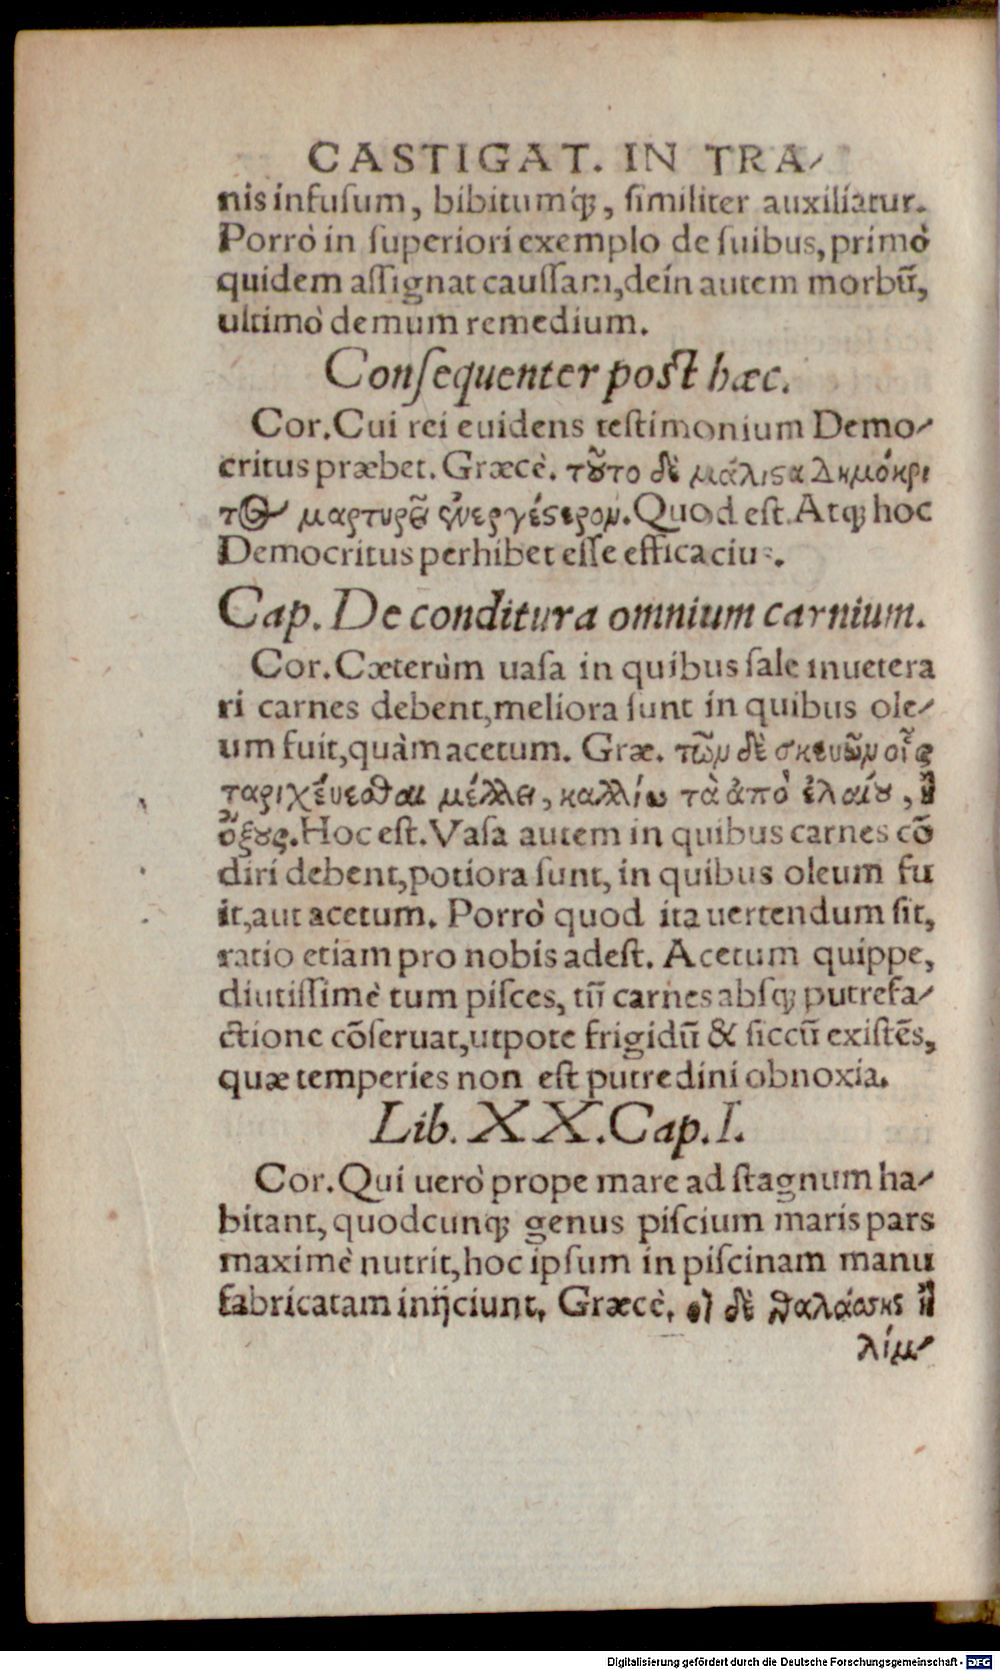 CASTIGAT. IN TRA-
nis infusum, bibitumq́;, similiter auxiliatur.
Porrò in superiori exemplo de suibus, primò
quidem assignat caussam, dein autem morbū,
ultimò demum remedium.
Consequenter post hæc.
Cor. Cui rei euidens testimonium Demo-
critus præbet. Græcè. τοῦτο δὲ μάλιςα Δημόκρι
τος μαρτυρεῖ ἐνεργέςερον. Quod est. Atq; hoc
Democritus perhibet esse efficacius.
Cap. De conditura omnium carnium.
Cor. Cæterùm uasa in quibus sale inuetera
ri carnes debent, meliora sunt in quibus ole-
um fuit, quàm acetum. Græ. τῶν δὲ σκευῶν οἷς
ταριχέυεσθαι μέλλει, καλλίω τὰ ἀπὸ ἐλαίου, ἢ
ὄξους. Hoc est. Vasa autem in quibus carnes cō
diri debent, potiora sunt, in quibus oleum fu
it, aut acetum. Porrò quod ita uertendum sit,
ratio etiam pro nobis adest. Acetum quippe,
diutissimè tum pisces, tū carnes absq; putrefa-
ctione cōseruat, utpote frigidū & siccū existēs,
quæ temperies non est putredini obnoxia.
Lib. XX. Cap. I.
Cor. Qui uerò prope mare ad stagnum ha-
bitant, quodcunq; genus piscium maris pars
maximè nutrit, hoc ipsum in piscinam manu
fabricatam inijciunt. Græcè. οἱ δὲ θαλάσσης ἢ
λίμ-
Digitalisierung gefördert durch die Deutsche Forschungsgemeinschaft - DFG